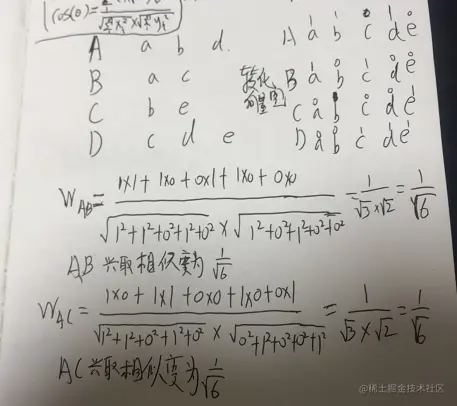 cos(θ)=
A a b d. A a b c d e
B a c 转化 B a b c d e
C b e 向量图 C a b c d e
D c d e D a b c d e
W_AB = (1×1+1×0+0×1+1×0+0×0)/(√(1²+1²+0²+1²+0²) × √(1²+0²+1²+0²+0²)) = 1/(√3×√2) = 1/√6
AB兴取相似变为 1/√6
W_AC = (1×0+1×1+0×0+1×0+0×1)/(√(1²+1²+0²+1²+0²) × √(0²+1²+0²+0²+1²)) = 1/(√3×√2) = 1/√6
AC兴取相似变为 1/√6
@稀土掘金技术社区